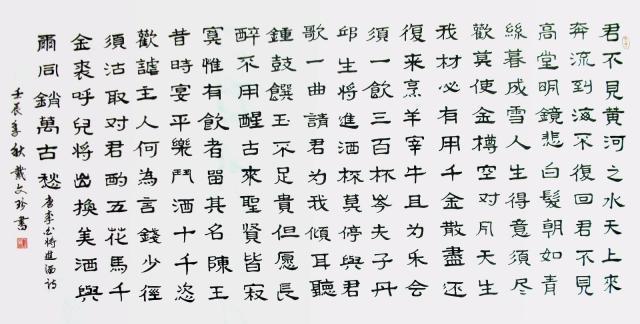 君不見黄河之水天上來
奔流到海不復回君不見
高堂明鏡悲白髮朝如青
絲暮成雪人生得意須尽
歡莫使金樽空对月天生
我材必有用千金散盡还
復來烹羊宰牛且为乐会
須一飲三百杯岑夫子丹
邱生将進酒杯莫停與君
歌一曲請君为我傾耳聽
鍾鼓饌玉不足貴但愿長
醉不用醒古來聖賢皆寂
寞惟有飲者留其名陳王
昔時宴平樂鬥酒十千恣
歡謔主人何為言錢少徑
須沽取对君酌五花馬千
金裘呼兒将出換美酒與
爾同銷萬古愁
唐李白将進酒詩
壬辰年秋戴文珍書